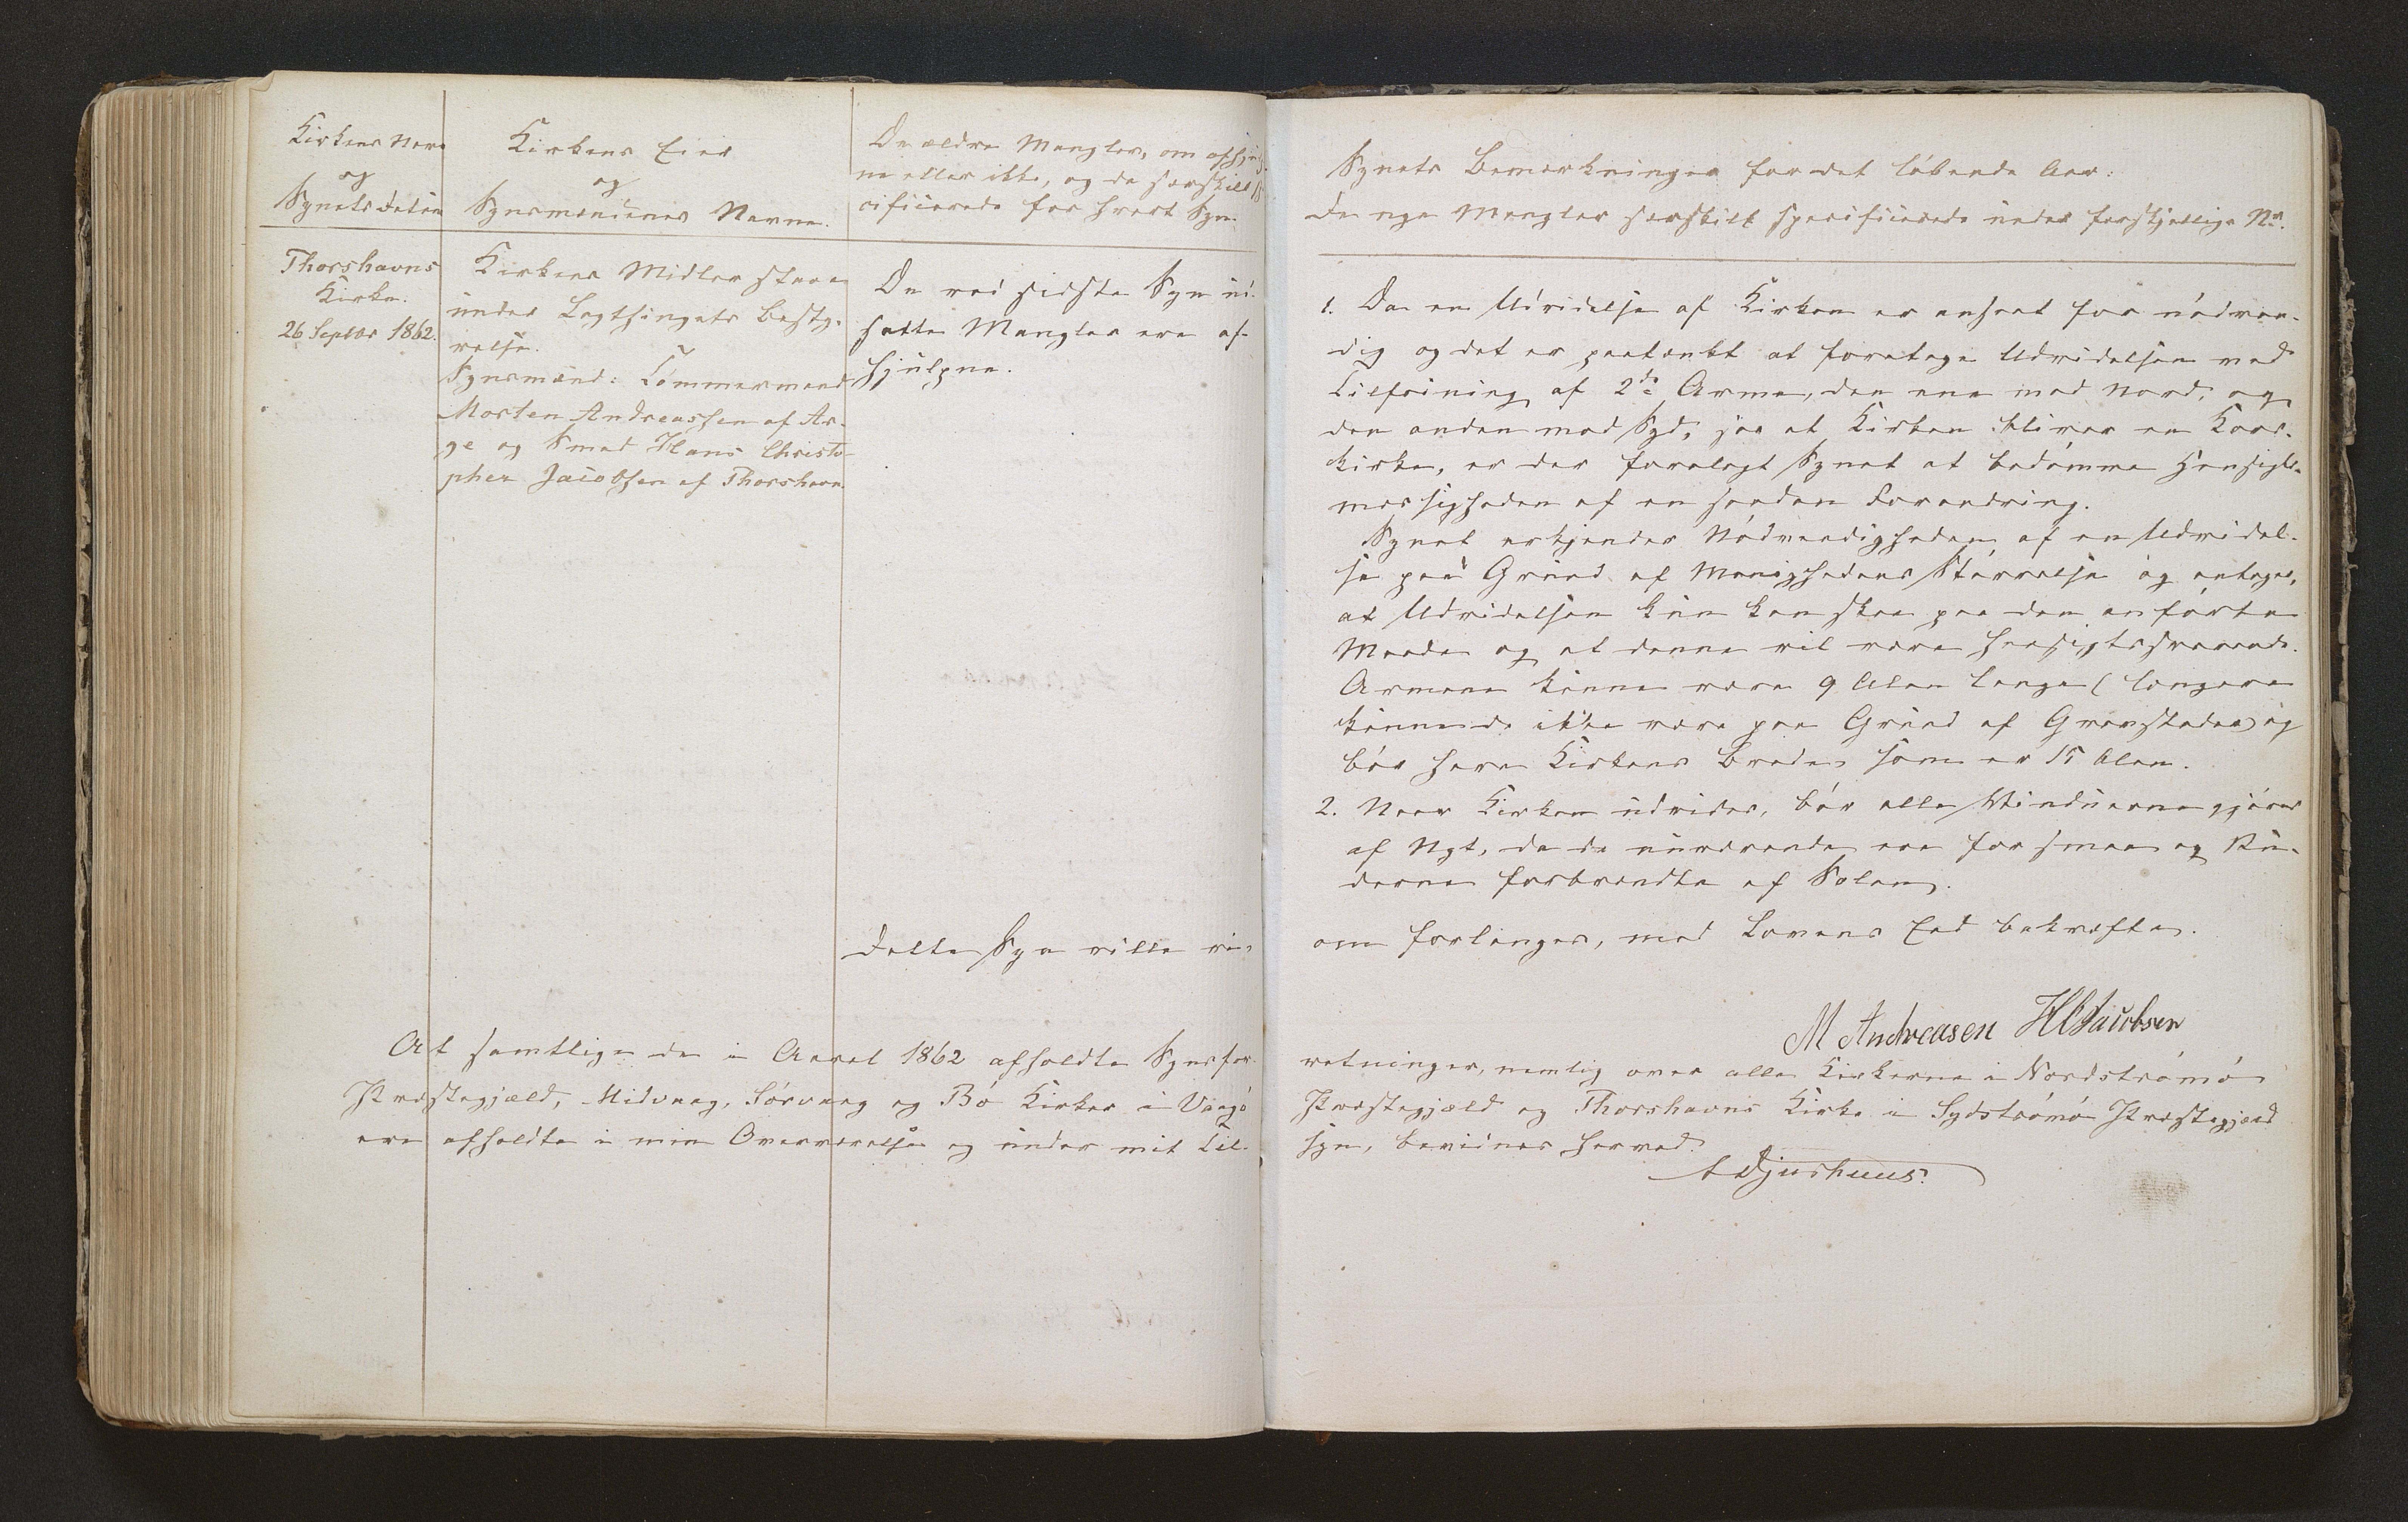 Kirkens Navn
og
Synets Datum
Kirkens Eier
og
Synsmændenes Navne.
De ældre Mangler, om afhjulp-
ne eller ikke, og da særskilt sp
cificerede for hvert Syn.
Thorshavns
Kirke.
26 Septbr 1862.
Kirkens Midler staae
under Lagthingets Besty-
relse.
Synsmænd: Tømmermand
Morten Andreassen af Ar-
ge og Smed Hans Christo-
pher Jacobsen af Thorshavn.
De ved sidste Syn ud-
satte Mangler ere af-
hjulpne.
Dette Syn ville vi,
At samtlige de i Aaret 1862 afholdte Synsfor-
Præstegjæld, Midvaag, Sørvaag og Bø Kirker i Vaagø
ere afholdte i min Overværelse og under mit Til-
Synets Bemærkninger for det løbende Aar:
De nye Mangler særskilt specificerede under forskjellige No.
1. Da en Udvidelse af Kirken er anseet for nødven-
dig og det er paatænkt at foretage Udvidelsen ved
Tilføining af 2de Arme, den ene mod Nord, og
den anden mod Syd, saa at Kirken bliver en Kors-
kirke, er der forelagt Synet at bedømme Hensigts-
mæssigheden af en saadan Forandring.
Synet erkjender Nødvendigheden af en Udvidel-
se paa Grund af Menighedens Størrelse og antager,
at Udvidelsen kun kan skee paa den anførte
Maade og at denne vil være hensigtssvarende.
Armene kunne være 9 Alen lange (længere
kunne de ikke være paa Grund af Gravsteder) og
bør have Kirkens Brede, som er 15 Alen.
2. Naar Kirken udvides, bør alle Vinduerne gjøres
af Nyt, da de nuværende ere for smaa og Ru-
derne forbrændte af Solen.
om forlanges, med Lovens Eed bekræfte.
M Andreasen HCJacobsen
retninger, nemlig over alle Kirkerne i Nordstrømø
Præstegjæld og Thorshavns Kirke i Sydstrømø Præstegjæld
syn, bevidnes herved.
A Djurhuus.